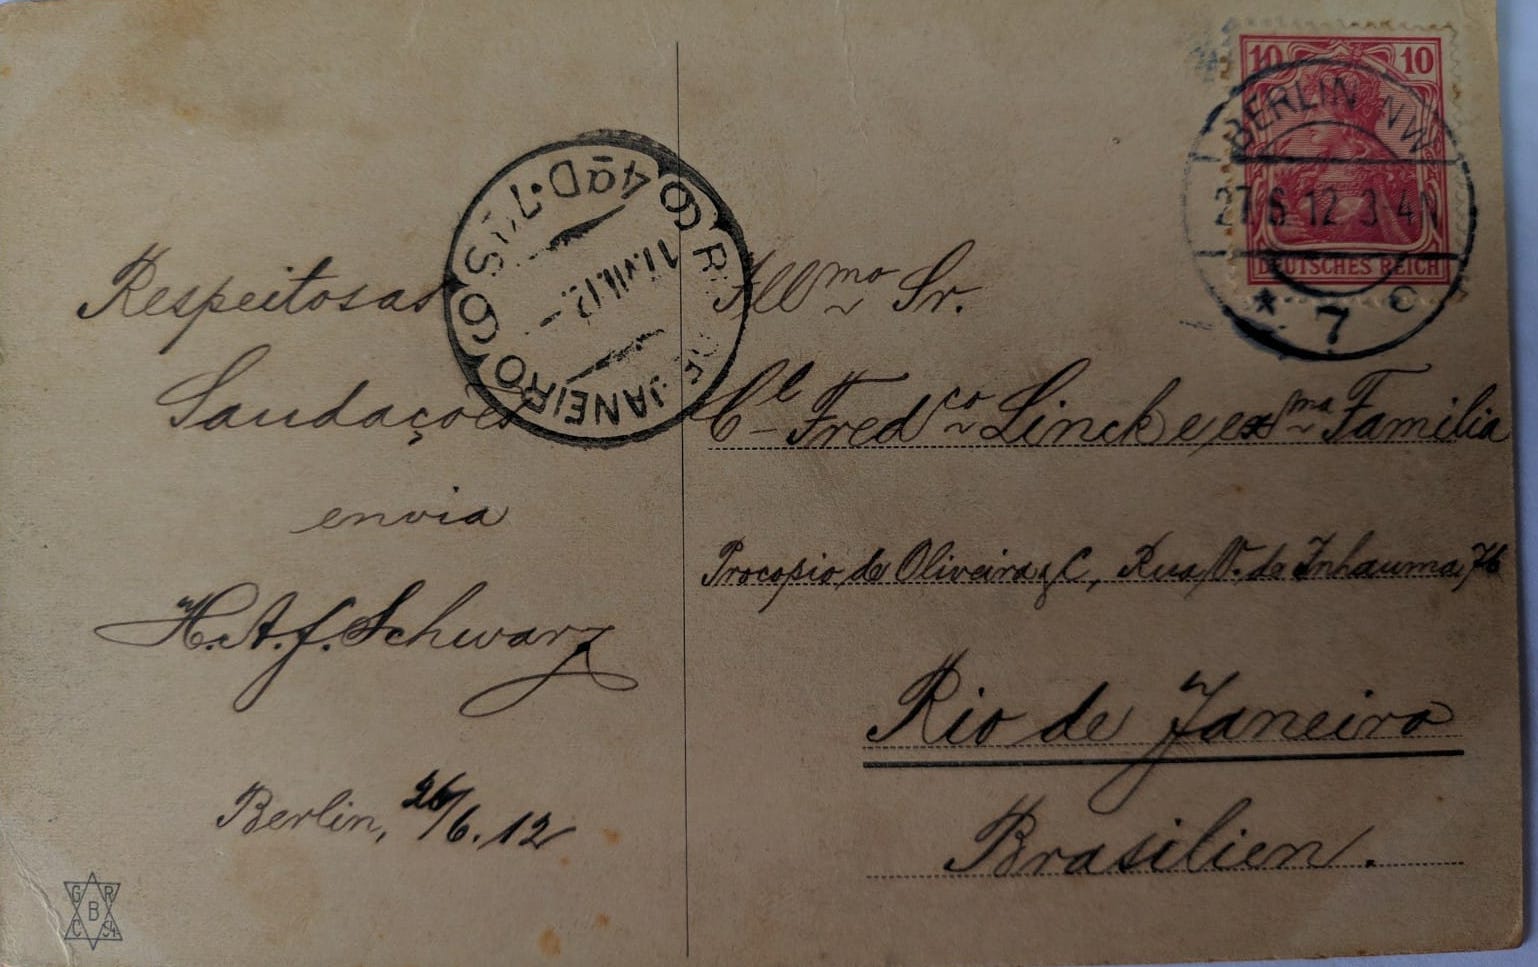 Respeitosas
Saudações
envia
H. A. F. Schwarz
Berlin, 26/6. 12
G R
B
C
10 10
DEUTSCHES REICH
BERLIN NW
27.6.12 3-4N
* 7 c
RIO DE JANEIRO
17.VII.12.
4ªD·7
Illmo Sr.
Cl Fredco Linck e exma Familia
Procopio de Oliveira & C, Rua V. de Inhauma, 76
Rio de Janeiro
Brasilien.